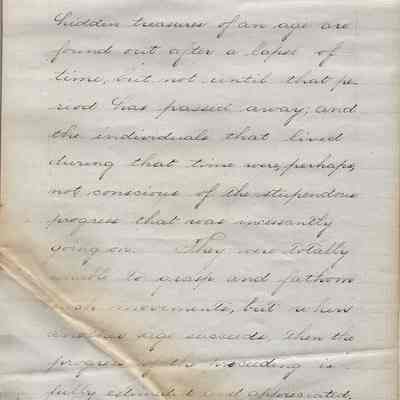 hidden treasures of an age are
found out after a lapse of
time, but not until that pe-
riod has passed away; and
the individuals that lived
during that time were, perhaps,
not conscious of the stupendous
progress that was incessantly
going on. They were totally
unable to grasp and fathom
such movements, but when
another age succeeds, then the
progress of the preceeding is
fully estimated and appreciated.